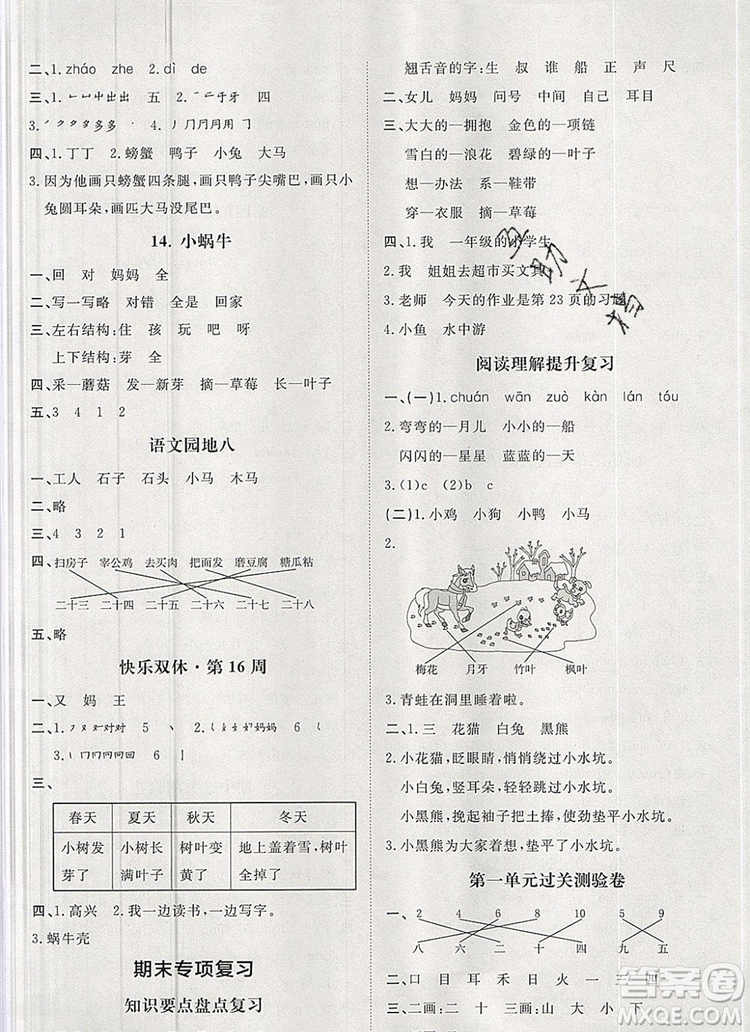 二、1. zháo zhe 2. dì de
三、1. 中出出 五 2. 于牙 四
3. 多多 4. 丿 冂 月 月 用 丁
四、1. 丁丁 2. 螃蟹 鸭子 小兔 大马
3. 因为他画只螃蟹四条腿,画只鸭子尖嘴巴。画只小
兔圆耳朵,画匹大马没尾巴。
14. 小蜗牛
一、回 对 妈妈 全
二、写一写略 对错 全是 回家
三、左右结构:住 孩 玩 吧 呀
上下结构:芽 全
四、采—蘑菇 发—新芽 摘—草莓 长—叶子
五、3 4 1 2
语文园地八
一、工人 石子 石头 小马 木马
二、略
三、4 3 2 1
四、扫房子 宰公鸡 去买肉 把面发 磨豆腐 糖瓜粘
二十三 二十四 二十五 二十六 二十七 二十八
五、略
快乐双休·第 16 周
一、又 妈 王
二、1. 对对 5 丶 2. 妈妈 6
3. 丨 冂 回回 6 一
三、
春天 夏天 秋天 冬天
小树发 小树叶 树叶变 地上盖着雪,树叶
芽了 满叶子 黄了 全掉了
四、1. 高兴 2. 我一边读书,一边写字。
3. 蜗牛壳
期末专项复习
知识要点盘点复习
翘舌音的字:生 叔 谁 船 正 声 尺
二、女儿 妈妈 问号 中间 自己 耳目
三、大大的—拥抱 金色的—项链
雪白的—浪花 碧绿的—叶子
想—办法 系—鞋带
穿—衣服 摘—草莓
四、1. 我 一年级的小学生
2. 我 姐姐去超市买文具
3. 老师 今天的作业是第 23 页的习题
4. 小鱼 水中游
阅读理解提升复习
一、(一)1. chuán wān zuò kàn lán tóu
2. 弯弯的—月儿 小小的—船
闪闪的—星星 蓝蓝的—天
3. (1)c (2)b c
(二)1. 小鸡 小狗 小鸭 小马
2.
梅花 月牙 竹叶 枫叶
3. 青蛙在洞里睡着啦。
二、1. 三 花猫 白兔 黑熊
2. 小花猫,眨眼睛,悄悄绕过小水坑。
小白兔,竖耳朵,轻轻跳过小水坑。
小黑熊,挽起袖子把土捧,使劲垫平小水坑。
3. 小黑熊为大家着想,垫平了小水坑。
第一单元过关测验卷
一、 2 4 6 10 5 9
八 六 二 十 四 九 五
二、口 目 耳 禾 日 火 一 三 四
三、二画:二 十 三画:山 大 小 下
互助文档
答案圈
MXQE.COM